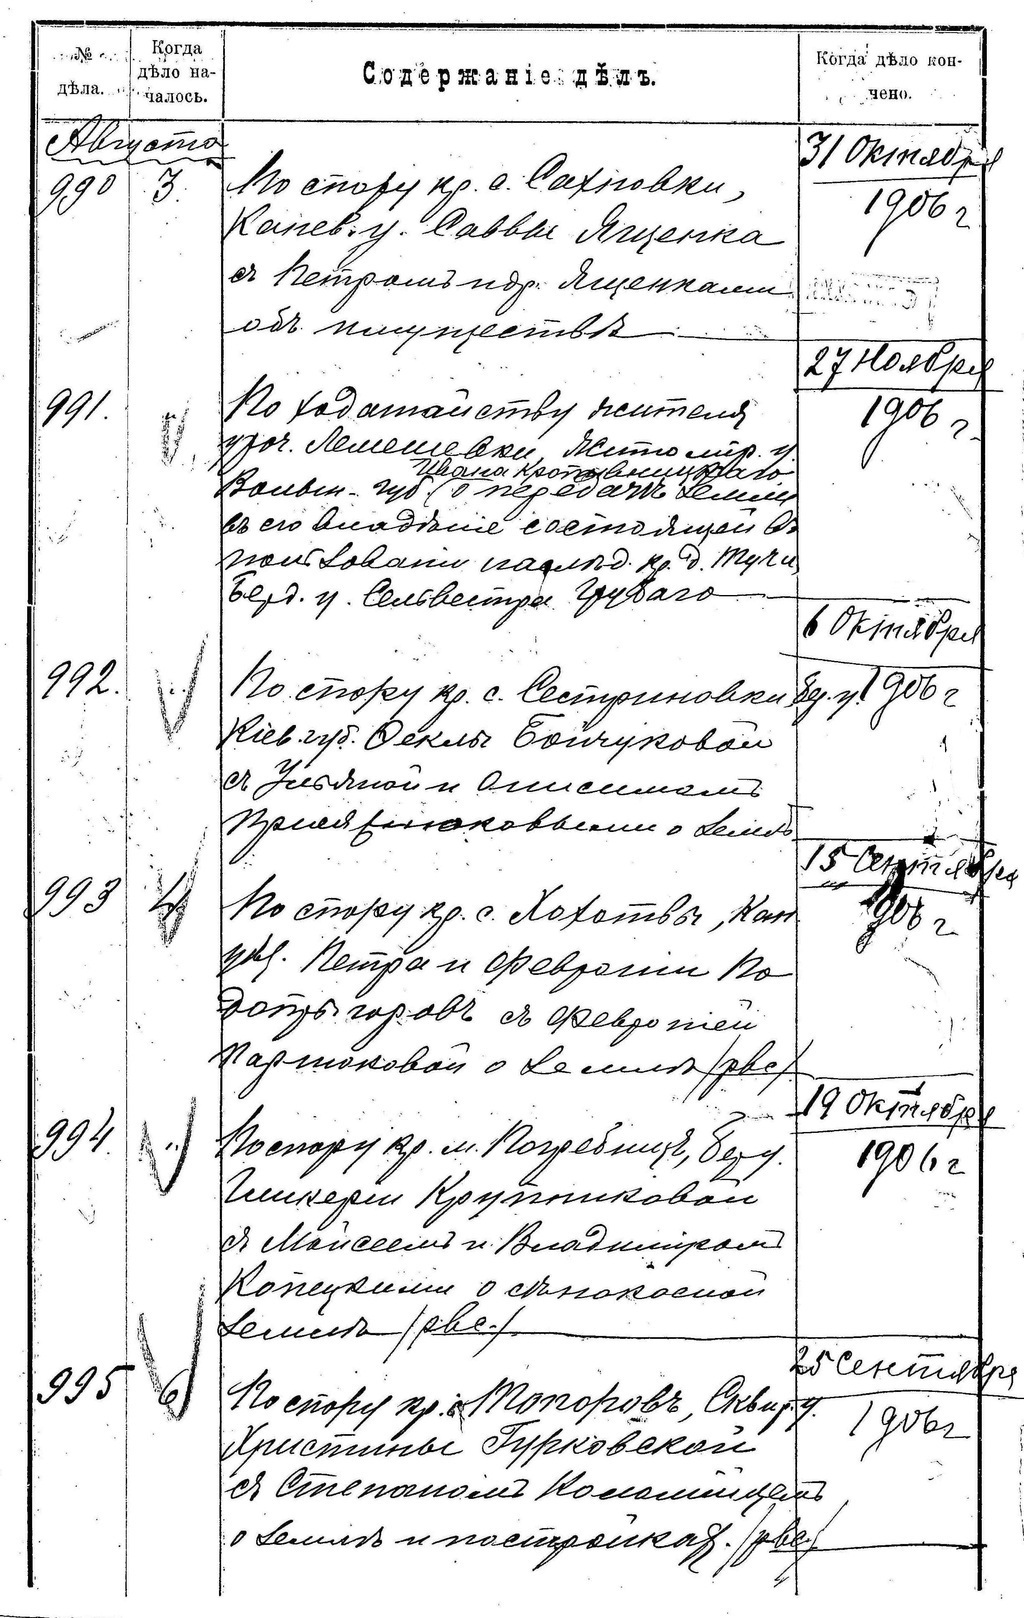 № дѣла.
Когда дѣло на-
чалось.
Содержаніе дѣлъ.
Когда дѣло кон-
чено.
Августа
990 3. По спору кр. с. Сахновки,
Канев. у. Саввы Ященка
съ Петромъ и др. Ященками
объ имуществѣ
31 Октября
1906 г
991. По ходатайству жителя
уроч. Лемешевки, Житомір. у.
Ивана Кропивницкаго
Волын. губ. о передачѣ земли
въ его владѣніе состоящей въ
пользованіи наслѣд. кр. д. Тучи
Берд. у. Сельвестра Грубаго
27 Ноября
1906 г.
992. По спору кр. с. Сестриновки Бер. у.
Кіев. губ. Феклы Бойчуковой
съ Ульяной и Онисимомъ
о землѣ
6 Октября
1906 г
993 4 По спору кр. с. Хохотвы, Кан
уѣз. Петра и Февроніи По
допригоровъ съ Февроніей
о землѣ /рвс/
15 Сентября
1906 г.
994. По спору кр. м. Погребищъ, Бер. у.
Гликеріи Крупниковой
съ Моисеемъ и Владиміромъ
Копецкими о сѣнокосной
землѣ /рвс./
19 Октября
1906 г
995 6 По спору кр. с. Топоровъ, Сквир. у.
Христины Гурковской
съ Степаномъ Коломійцемъ
о землѣ и постройкахъ. /рвс/
25 Сентября
1906 г